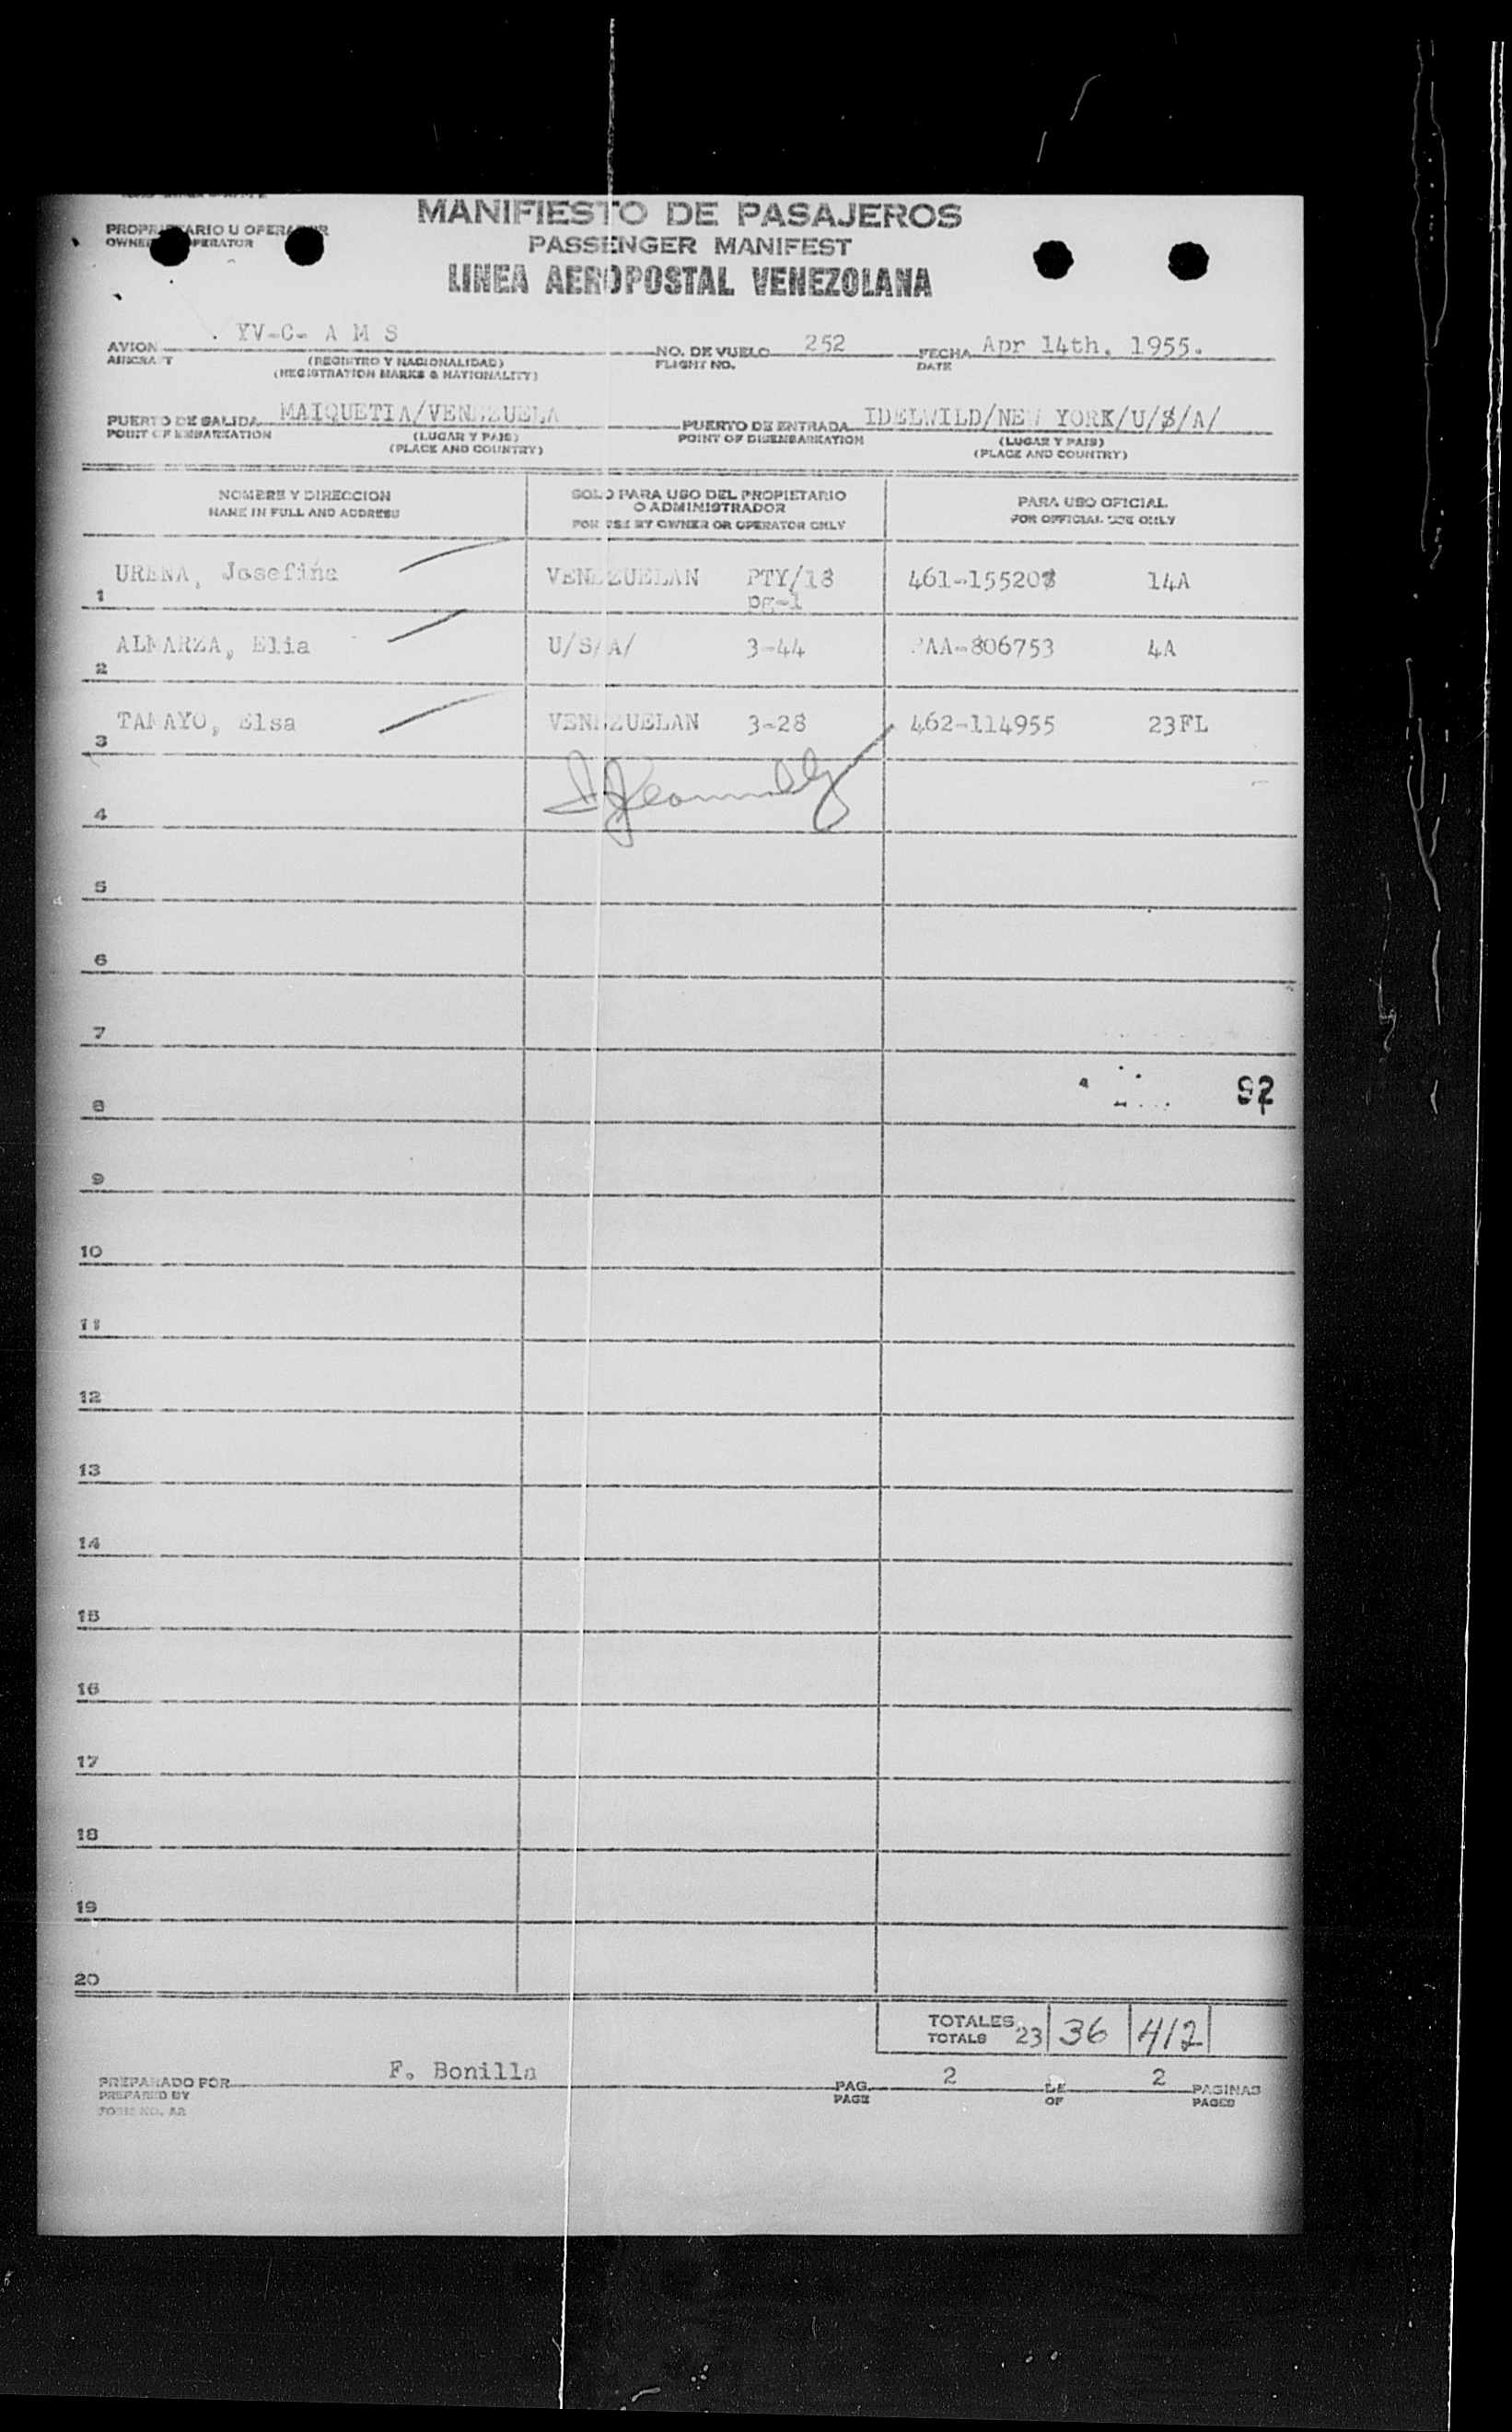 MANIFIESTO DE PASAJEROS
PROPIETARIO U OPERADOR
OWNER OPERATOR
PASSENGER MANIFEST
LINEA AEROPOSTAL VENEZOLANA
AVION YV-C- A M S NO. DE VUELO 252 FECHA Apr 14th. 1955.
AIRCRAFT (REGISTRO Y NACIONALIDAD) FLIGHT NO. DATE
(REGISTRATION MARKS & NATIONALITY)
PUERTO DE SALIDA MAIQUETIA/VENEZUELA PUERTO DE ENTRADA IDELWILD/NEW YORK/U/S/A/
POINT OF EMBARKATION (LUGAR Y PAIS) POINT OF DISEMBARKATION (LUGAR Y PAIS)
(PLACE AND COUNTRY) (PLACE AND COUNTRY)
NOMBRE Y DIRECCION SOLO PARA USO DEL PROPIETARIO PARA USO OFICIAL
O ADMINISTRADOR
NAME IN FULL AND ADDRESS FOR USE BY OWNER OR OPERATOR ONLY FOR OFFICIAL USE ONLY
URENA, Josefina VENEZUELAN PTY/18 461-155208 14A
1 pg-1
ALMARZA, Elia U/S/A/ 3-44 PAA-806753 4A
2
TAMAYO, Elsa VENEZUELAN 3-28 462-114955 23FL
3
4
5
6
7
92
8
9
10
11
12
13
14
15
16
17
18
19
20
TOTALES
TOTALS 23 36 412
PREPARADO POR F. Bonilla PAG. 2 DE 2 PAGINAS
PREPARED BY PAGE OF PAGES
FORM NO. A2